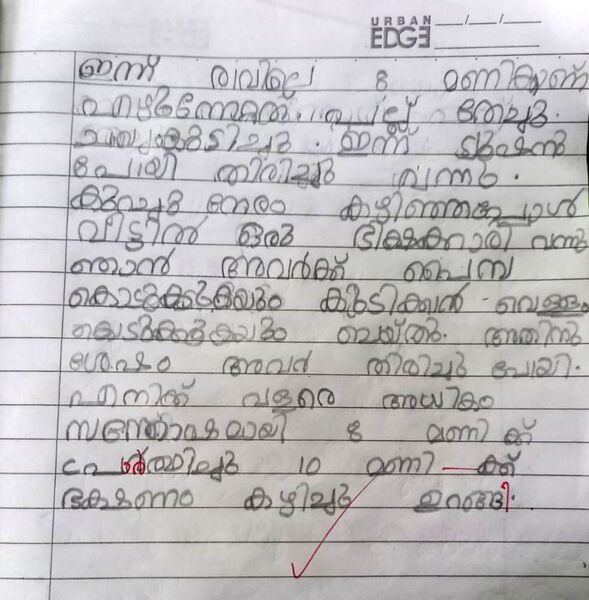 URBAN
EDGE
ഇന്ന് രാവിലെ 8 മണിക്കാണ്
എഴുന്നേറ്റത്. പല്ല് തേച്ചു.
ചായകുടിച്ചു. ഇന്ന് ട്യൂഷന്
പോയി തിരിച്ചു വന്നു.
കുറച്ചു നേരം കഴിഞ്ഞപ്പോൾ
വീട്ടിൽ ഒരു ഭിക്ഷക്കാരി വന്നു
ഞാൻ അവർക്ക് പൈസ
കൊടുക്കുകയും കുടിക്കാൻ വെള്ളം
കൊടുക്കുകയും ചെയ്തു. അതിനു
ശേഷം അവർ തിരിച്ചു പോയി.
എനിക്ക് വളരെ അധികം
സന്തോഷമായി 8 മണി ക്ക്
പ്രാർത്ഥിച്ചു 10 മണി ക്ക്
ഭക്ഷണം കഴിച്ചു ഉറങ്ങി.